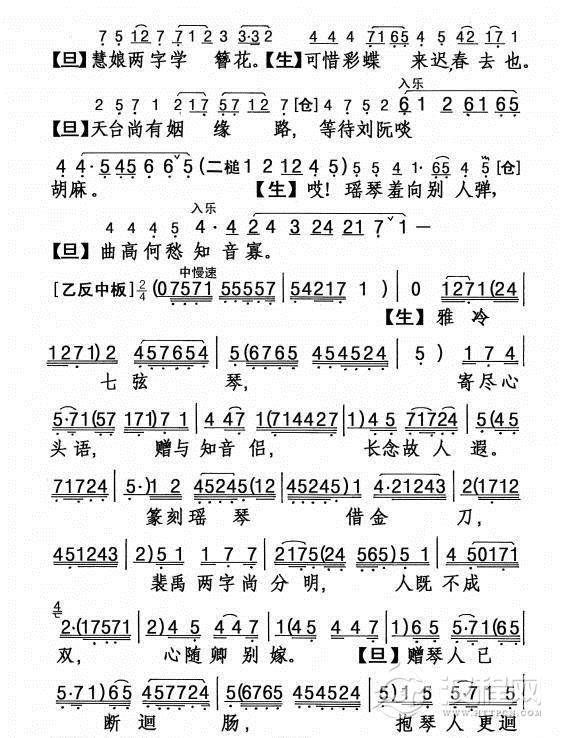 7 5 127 7 7123 3·32 4 4 4 7165 4·5 42 17 1
【旦】慧娘两字学 簪花。【生】可惜彩蝶 来迟,春去也。
入乐
2 5 7 1 2 17 57 12 7 [仓] 4 7 5 2 61 2 6165
【旦】天台尚有姻 缘 路, 等待刘阮啖
4 4· 545 6 6ˇ5 (二槌 1 2 12 4 5) 5 5 4 1· 65 4 5 [仓]
胡麻。 【生】哎! 瑶琴羞向别 人弹,
入乐
4 4 4 5 4· 4 24 3 24 21 7ˇ1 —
【旦】曲高何愁 知 音 寡。
中慢速
[乙反中板] 2/4 (07571 55557 | 54217 1 ) | 0 1271 (24
【生】雅 冷
1271) 2 457654 | 5 (6765 454524 | 5 ) 1 7 4
七 弦 琴, 寄尽心
5·71 (57 171) 7 1 | 4 47 1 (714427 | 1) 4 5 71724 | 5 (45
头语, 赠与 知音 侣, 长念故 人 遐。
71724 | 5·) 1 2 45245 (12 | 45245) 1 4·21243 | 2 (1712
篆刻瑶 琴 借金 刀,
451243 | 2) 5 1 1 7 7 | 2175 (24 565) 5 1 | 4 50171
裴禹 两字尚 分明, 人既 不成
4
2·(17571 | 2) 4 5 4 4 7 | 1 (45 4 4 7 | 1) 4 5 5·71 (61
双, 心随 卿 别 嫁。 【旦】赠琴人 已
5·71) 65 457724 | 5 (6765 454524 | 5) 1 5 5·7 5
断 迴 肠, 抱琴 人更迴